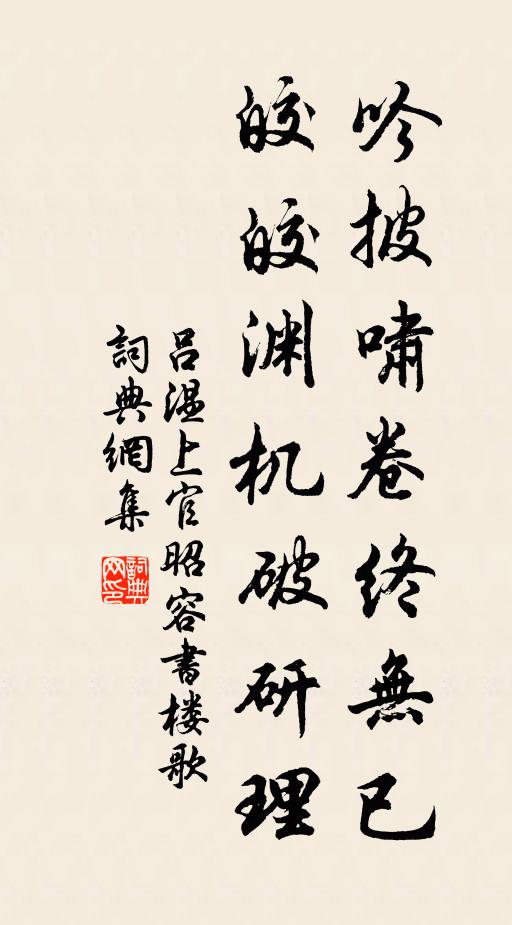 吟披嘯卷終無已
皎皎渊机破研理
吕温上官昭容書楼歌
詞典網集
詞典网印